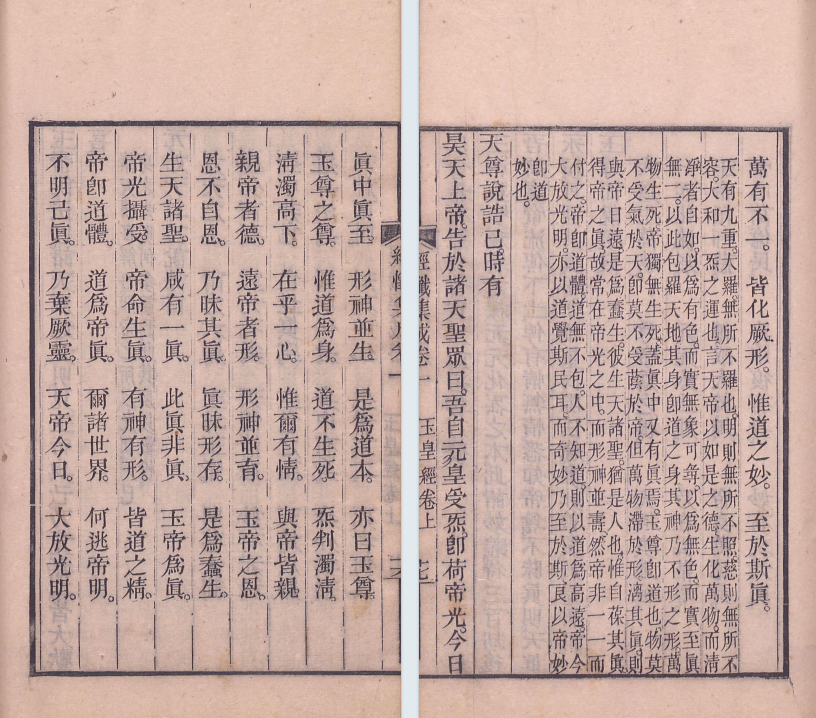 萬有不一。皆化厥形。惟道之妙。至於斯眞。
天有九重。大羅無所不羅也。明則無所不照。慈則無所不
容。大和一炁之運也。言天帝以如是之德。生化萬物。而清
淨者自如。以爲有色。而實無象可尋。以爲無色。而實至眞
無二。以此包羅天地。其身卽道之身。其神乃不形之形。萬
物生死。帝獨無生死。蓋眞中又有眞焉。玉尊卽道也。物莫
不受氣於天。卽莫不受蔭於帝。但萬物滯於形。漓其眞。則
與帝日遠。是爲蠢生。彼生天諸聖。猶是人也。惟自葆其眞。
得帝之眞。故常在帝光之中。而形神並壽。然帝非一一而
付之。帝卽道體。道無不包。人不知道。則以道爲高遠。帝今
大放光明。亦以道覺斯民耳。而奇妙乃至於斯。良以帝妙
卽道
妙也。
天尊說誥已。時有
昊天上帝。告於諸天聖眾曰。吾自元皇受炁。卽荷帝光。今日
經懺集成卷一 玉皇經卷上 七
眞中眞至。形神並生。是爲道本。亦曰玉尊。
玉尊之尊。惟道爲身。道不生死。炁判濁清。
淸濁高下。在乎一心。惟爾有情。與帝皆親。
親帝者德。遠帝者形。形神並育。玉帝之恩。
恩不自恩。乃昧其眞。眞昧形存。是爲蠢生。
生天諸聖。咸有一眞。此眞非眞。玉帝爲眞。
帝光攝受。帝命生眞。有神有形。皆道之精。
帝卽道體。道爲帝眞。爾諸世界。何逃帝明。
不明己眞。乃棄厥靈。天帝今日。大放光明。